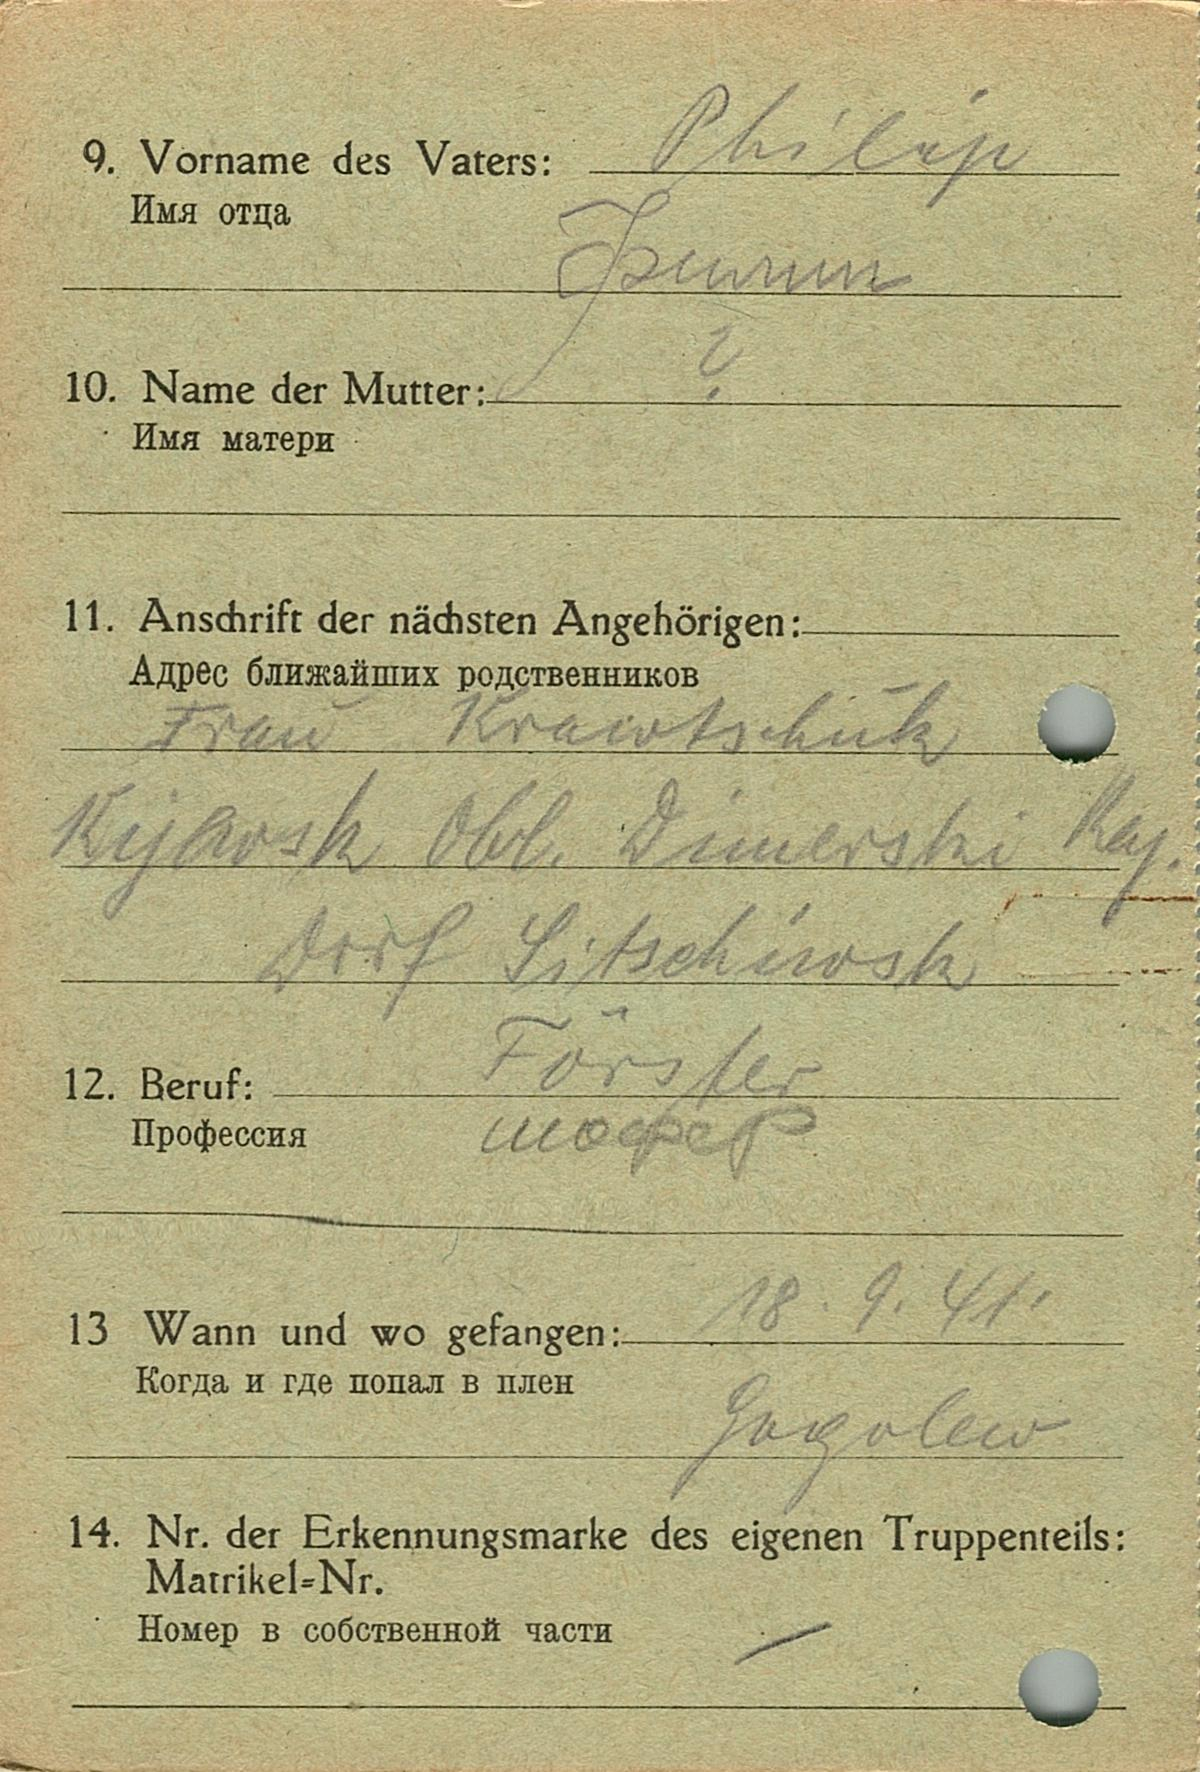 9. Vorname des Vaters: Philip
Имя отца
Филипп
10. Name der Mutter: ?
Имя матери
11. Anschrift der nächsten Angehörigen:
Адрес ближайших родственников
Frau Krawtschuk
Kijewsk Obl. Dimerski Raj.
Dorf Litschiwsk
12. Beruf: Förster
Профессия шофер
13 Wann und wo gefangen: 18. 9. 41.
Когда и где попал в плен
Gogolew
14. Nr. der Erkennungsmarke des eigenen Truppenteils:
Matrikel=Nr.
Номер в собственной части /